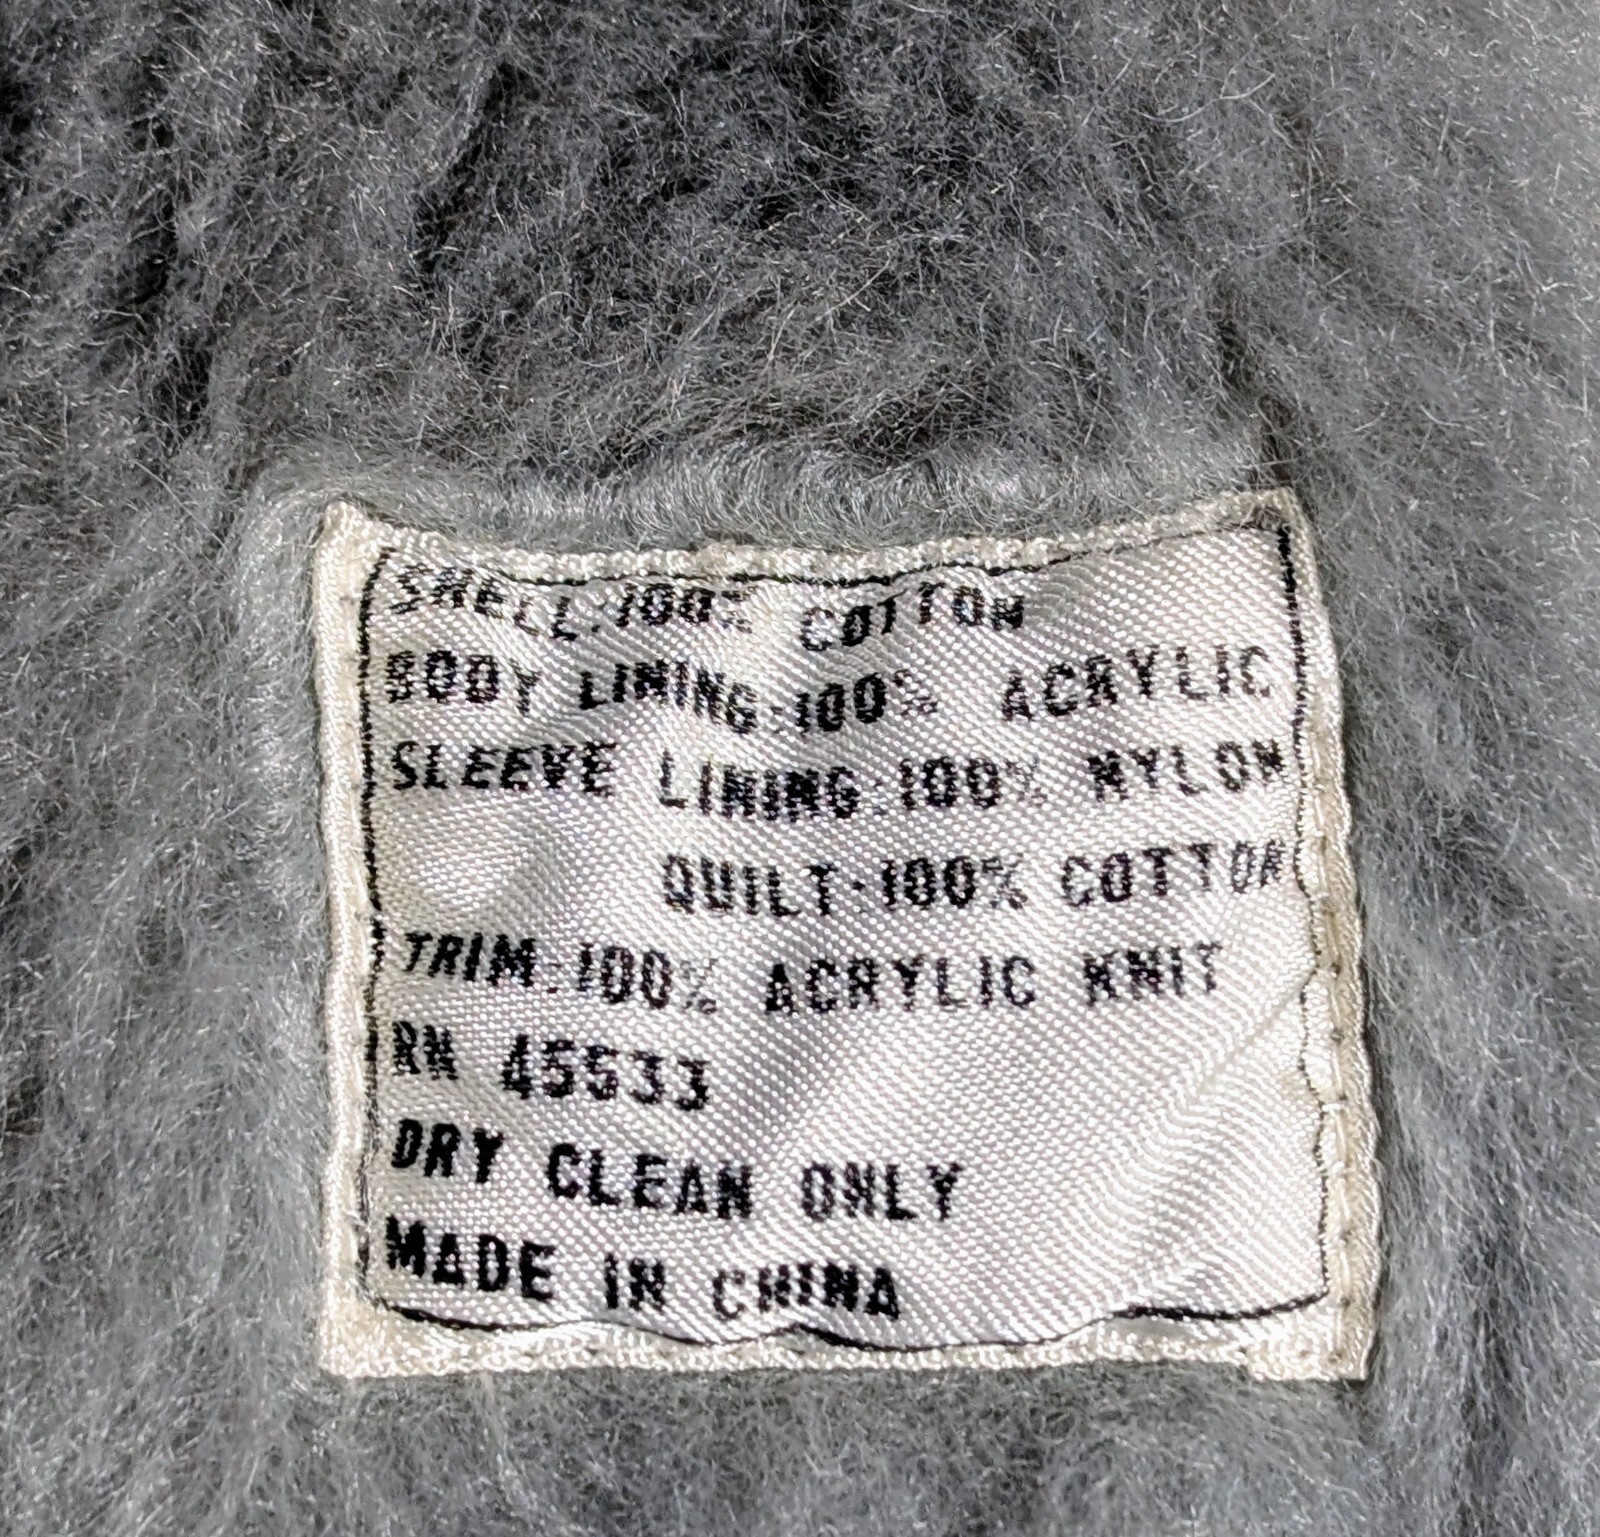 SHELL:100% COTTON
BODY LINING:100% ACRYLIC
SLEEVE LINING:100% NYLON
QUILT:100% COTTON
TRIM:100% ACRYLIC KNIT
RN 45533
DRY CLEAN ONLY
MADE IN CHINA